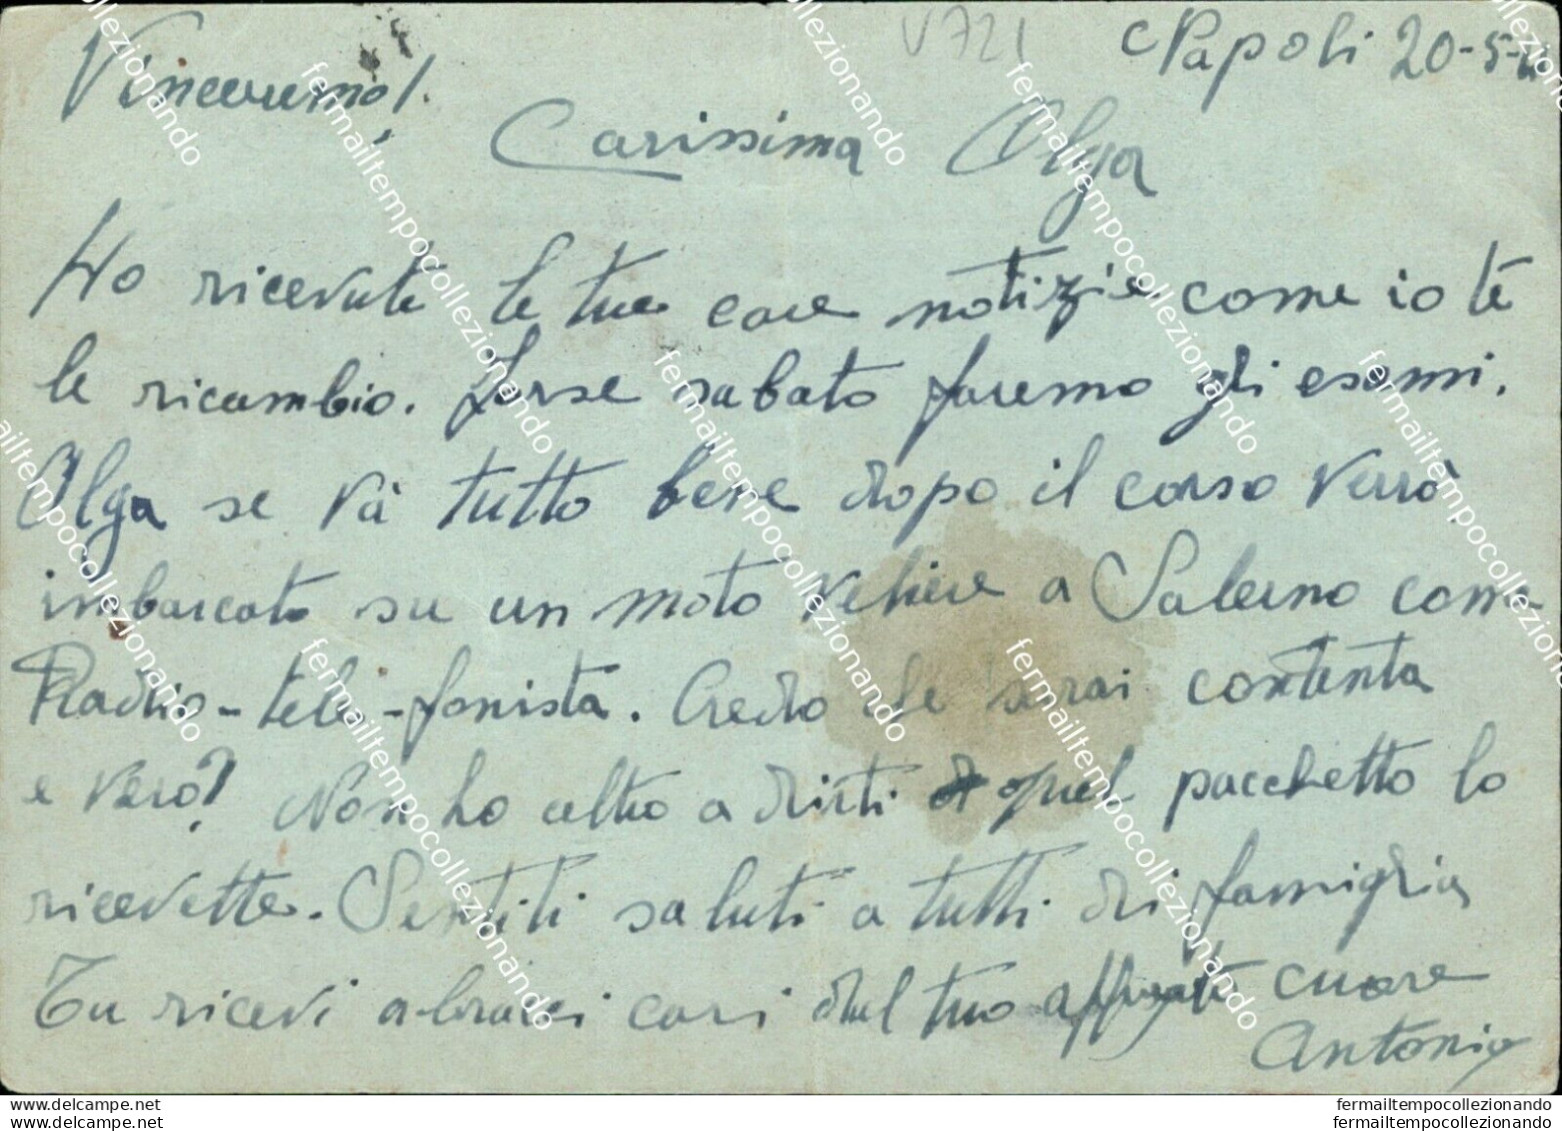 V721
Napoli 20-5-
Vinceremo!
Carissima Olga
Ho ricevute le tue care notizie come io te
le ricambio. forse sabato faremo gli esami.
Olga se và tutto bene dopo il corso verrò
imbarcato su un moto veliere a Salerno come
Radio-tele-fonista. Credo che sarai contenta
e vero? Non ho altro a dirti quel pacchetto lo
ricevette. Sentiti saluti a tutti di famiglia
Tu ricevi abracci cari dal tuo cuore
Antonio
www.delcampe.net
www.delcampe.net
fermailtempocollezionando
fermailtempocollezionando